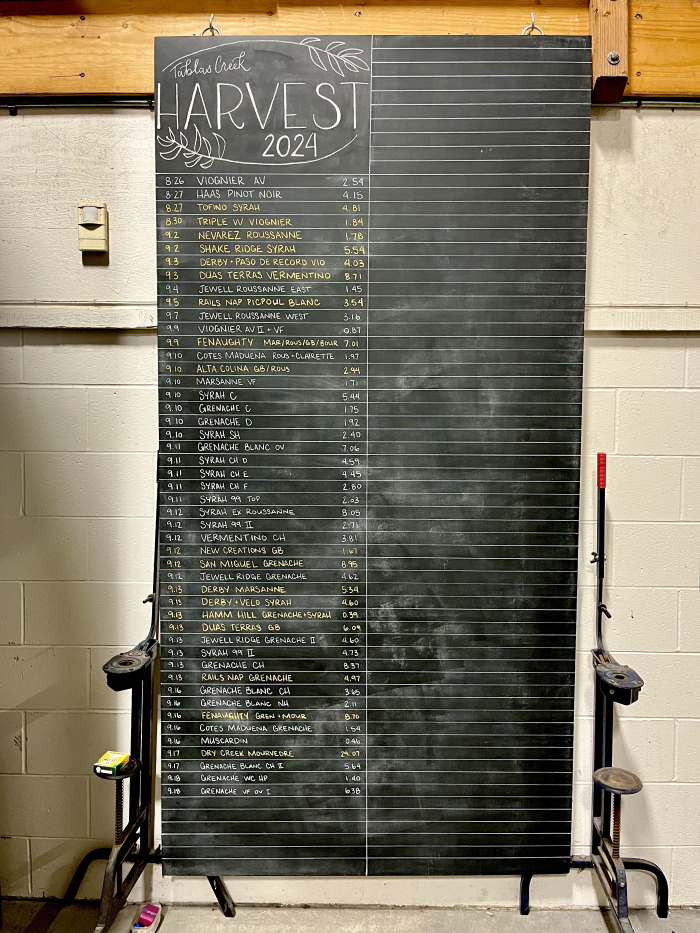 Tablas Creek
HARVEST
2024
8.26 VIOGNIER AV 2.54
8.27 HAAS PINOT NOIR 4.15
8.27 TOFINO SYRAH 4.81
8.30 TRIPLE W VIOGNIER 1.84
9.2 NEVAREZ ROUSSANNE 1.78
9.2 SHAKE RIDGE SYRAH 5.54
9.3 DERBY + PASO DE RECORD VIO 4.03
9.3 DUAS TERRAS VERMENTINO 8.71
9.4 JEWELL ROUSSANNE EAST 1.45
9.5 RAILS NAP PICPOUL BLANC 3.54
9.7 JEWELL ROUSSANNE WEST 3.16
9.9 VIOGNIER AV II + VF 0.87
9.9 FENAUGHTY MAR/ROUS/GB/BOUR 7.01
9.10 COTES MADUENA ROUS + CLAIRETTE 1.97
9.10 ALTA COLINA GB/ROUS 2.94
9.10 MARSANNE VF 1.71
9.10 SYRAH C 5.44
9.10 GRENACHE C 1.75
9.10 GRENACHE D 1.92
9.10 SYRAH SH 2.40
9.11 GRENACHE BLANC OV 7.06
9.11 SYRAH CH D 4.59
9.11 SYRAH CH E 4.45
9.11 SYRAH CH F 2.80
9.11 SYRAH 99 TOP 2.03
9.12 SYRAH EX ROUSSANNE 8.05
9.12 SYRAH 99 II 2.71
9.12 VERMENTINO CH 3.81
9.12 NEW CREATIONS GB 1.67
9.12 SAN MIGUEL GRENACHE 8.95
9.12 JEWELL RIDGE GRENACHE 4.62
9.13 DERBY MARSANNE 5.34
9.13 DERBY + VELO SYRAH 4.60
9.13 HAMM HILL GRENACHE + SYRAH 0.39
9.13 DUAS TERRAS GB 6.09
9.13 JEWELL RIDGE GRENACHE II 4.60
9.13 SYRAH 99 II 4.73
9.13 GRENACHE CH 8.37
9.13 RAILS NAP GRENACHE 4.97
9.16 GRENACHE BLANC CH 3.65
9.16 GRENACHE BLANC NH 2.11
9.16 FENAUGHTY GREN + MOUR 8.70
9.16 COTES MADUENA GRENACHE 1.54
9.16 MUSCARDIN 0.46
9.17 DRY CREEK MOURVEDRE
9.17 GRENACHE BLANC CH II 5.64
9.18 GRENACHE WC HP 1.40
9.18 GRENACHE VF OV I 6.38